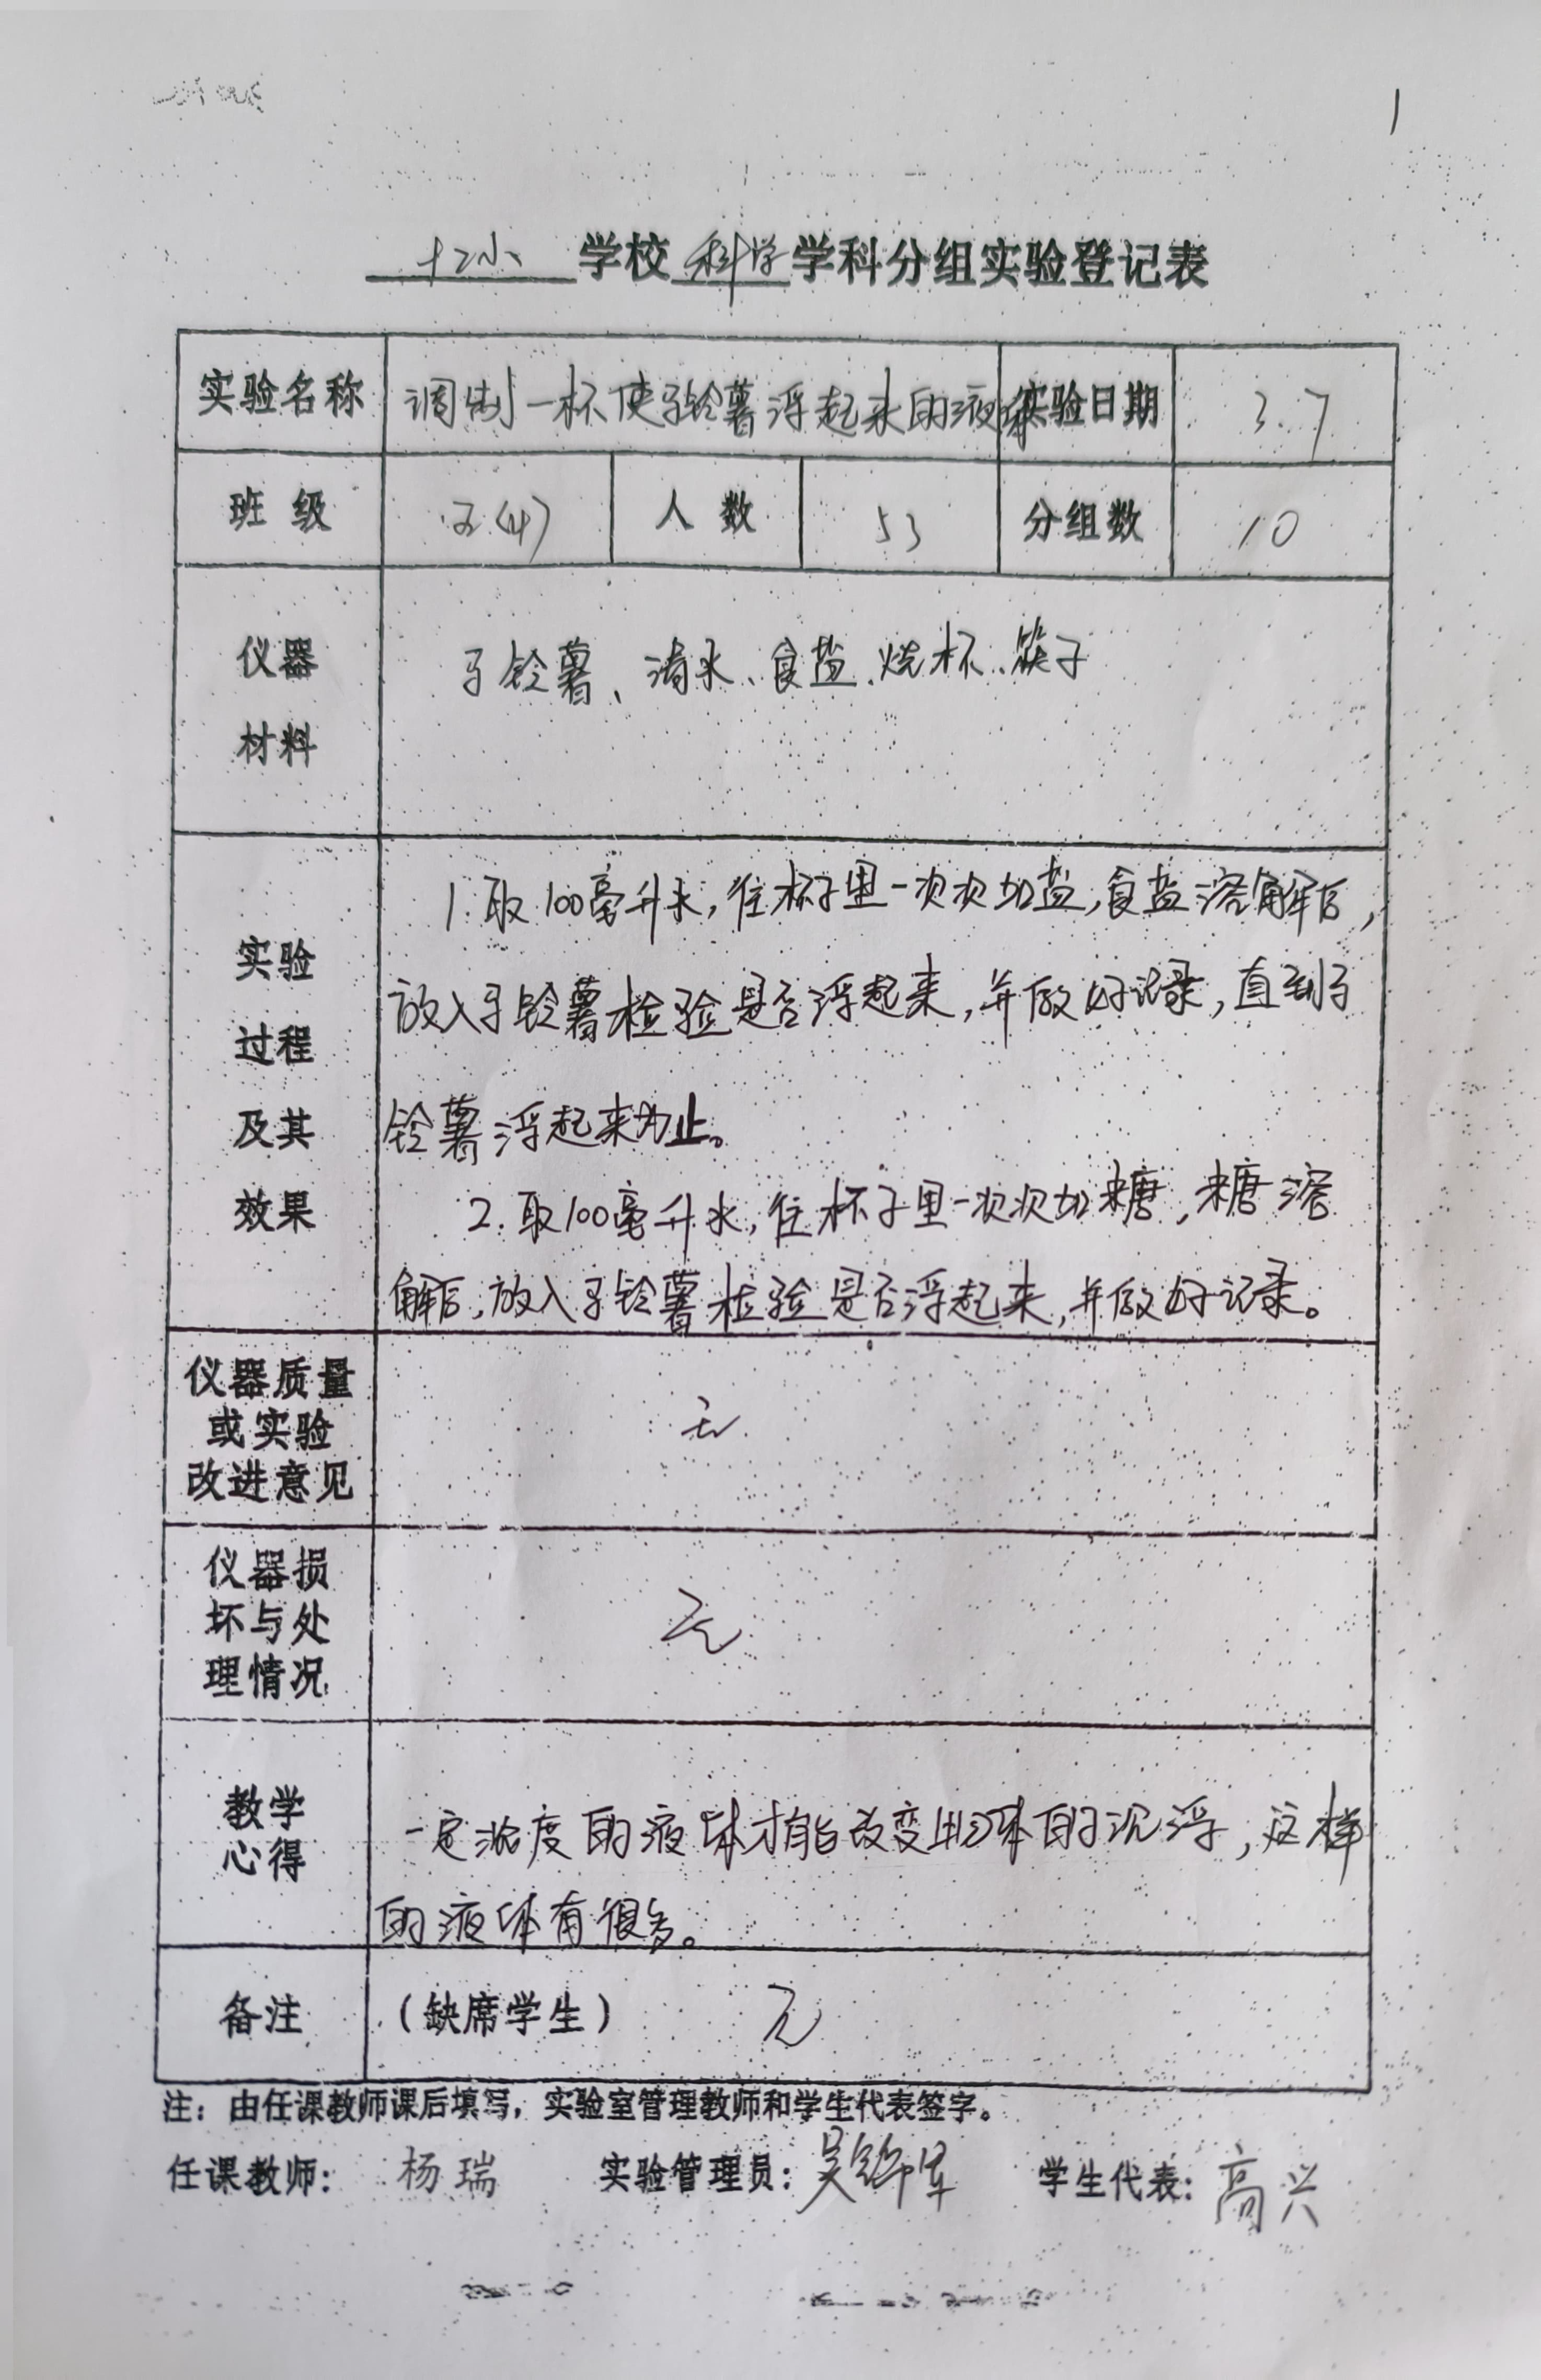 1
十二小 学校 科学 学科分组实验登记表
实验名称 调制一杯使马铃薯浮起来的液体 实验日期 3.7
班级 五(4) 人数 53 分组数 10
仪器
材料
马铃薯、清水、食盐、烧杯、筷子
实验
过程
及其
效果
1.取100毫升水,往杯子里一次次加盐,食盐溶解后,
放入马铃薯检验是否浮起来,并做好记录,直到马
铃薯浮起来为止。
2.取100毫升水,往杯子里一次次加糖,糖溶
解后,放入马铃薯检验是否浮起来,并做好记录。
仪器质量
或实验
改进意见
无
仪器损
坏与处
理情况
无
教学
心得
一定浓度的液体才能改变物体的沉浮,这样
的液体有很多。
备注 (缺席学生) 无
注:由任课教师课后填写,实验室管理教师和学生代表签字。
任课教师: 杨瑞 实验管理员: 吴锦军 学生代表: 高兴